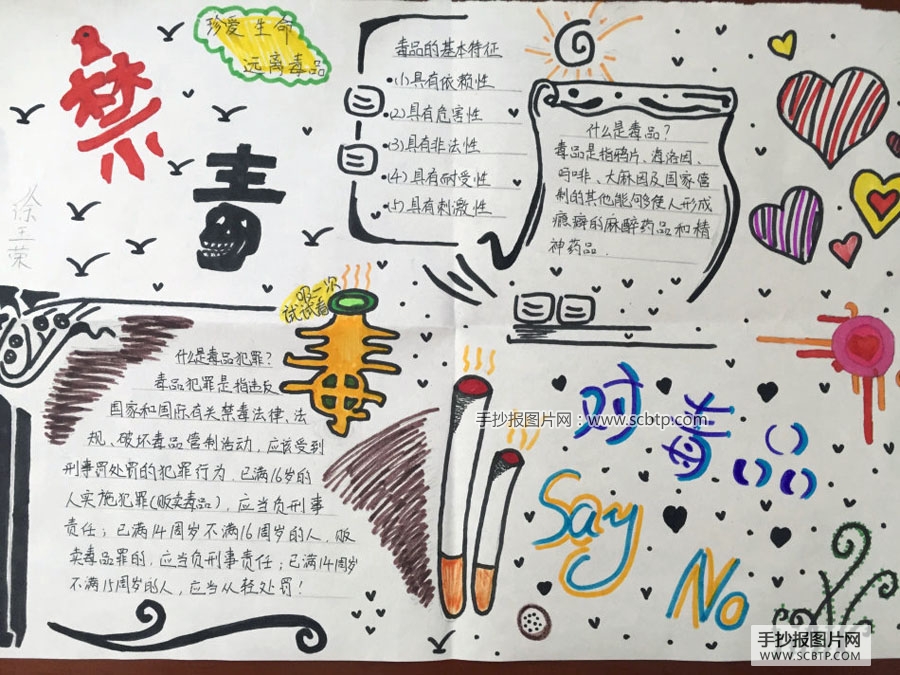 禁
毒
珍爱生命
远离毒品
徐王荣
毒品的基本特征
(1)具有依赖性
(2)具有危害性
(3)具有非法性
(4)具有耐受性
(5)具有刺激性
什么是毒品？
毒品是指鸦片、海洛因、
吗啡、大麻因及国家管
制的其他能够使人形成
瘾癖的麻醉药品和精
神药品.
吸一次
试试看
什么是毒品犯罪？
毒品犯罪是指违反
国家和国际有关禁毒法律、法
规、破坏毒品管制活动,应该受到
刑事罚处罚的犯罪行为.已满16岁的
人实施犯罪(贩卖毒品)，应当负刑事
责任；已满14周岁不满16周岁的人，贩
卖毒品罪的，应当负刑事责任；已满14周岁
不满15周岁的人，应当从轻处罚！
手抄报图片网：www.scbtp.com
对毒品
Say
No
手抄报图片网
WWW.SCBTP.COM